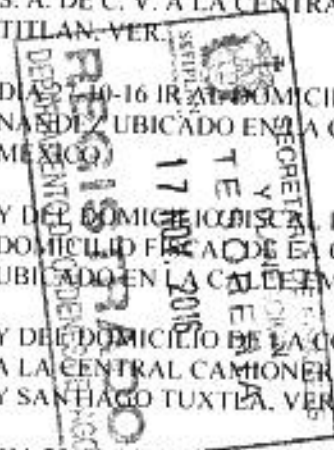 S. A. DE C. V. A LA CENTRA
TITLAN, VER.
DIA 27-10-16 IR AL DOMICIL
NANDEZ UBICADO EN LA C
MEXICO)
Y DEL DOMICILIO FISCAL
DOMICILIO FISCAL DE LA C
UBICADO EN LA CALLE EM
Y DEL DOMICILIO DE LA CO
A LA CENTRAL CAMIONER
Y SANTIAGO TUXTLA, VER
SEFIPLAN
SECRETARÍA DE
Y
TESORERIA
17 NOV. 2016
REGISTRADO
DEPARTAMENTO DE